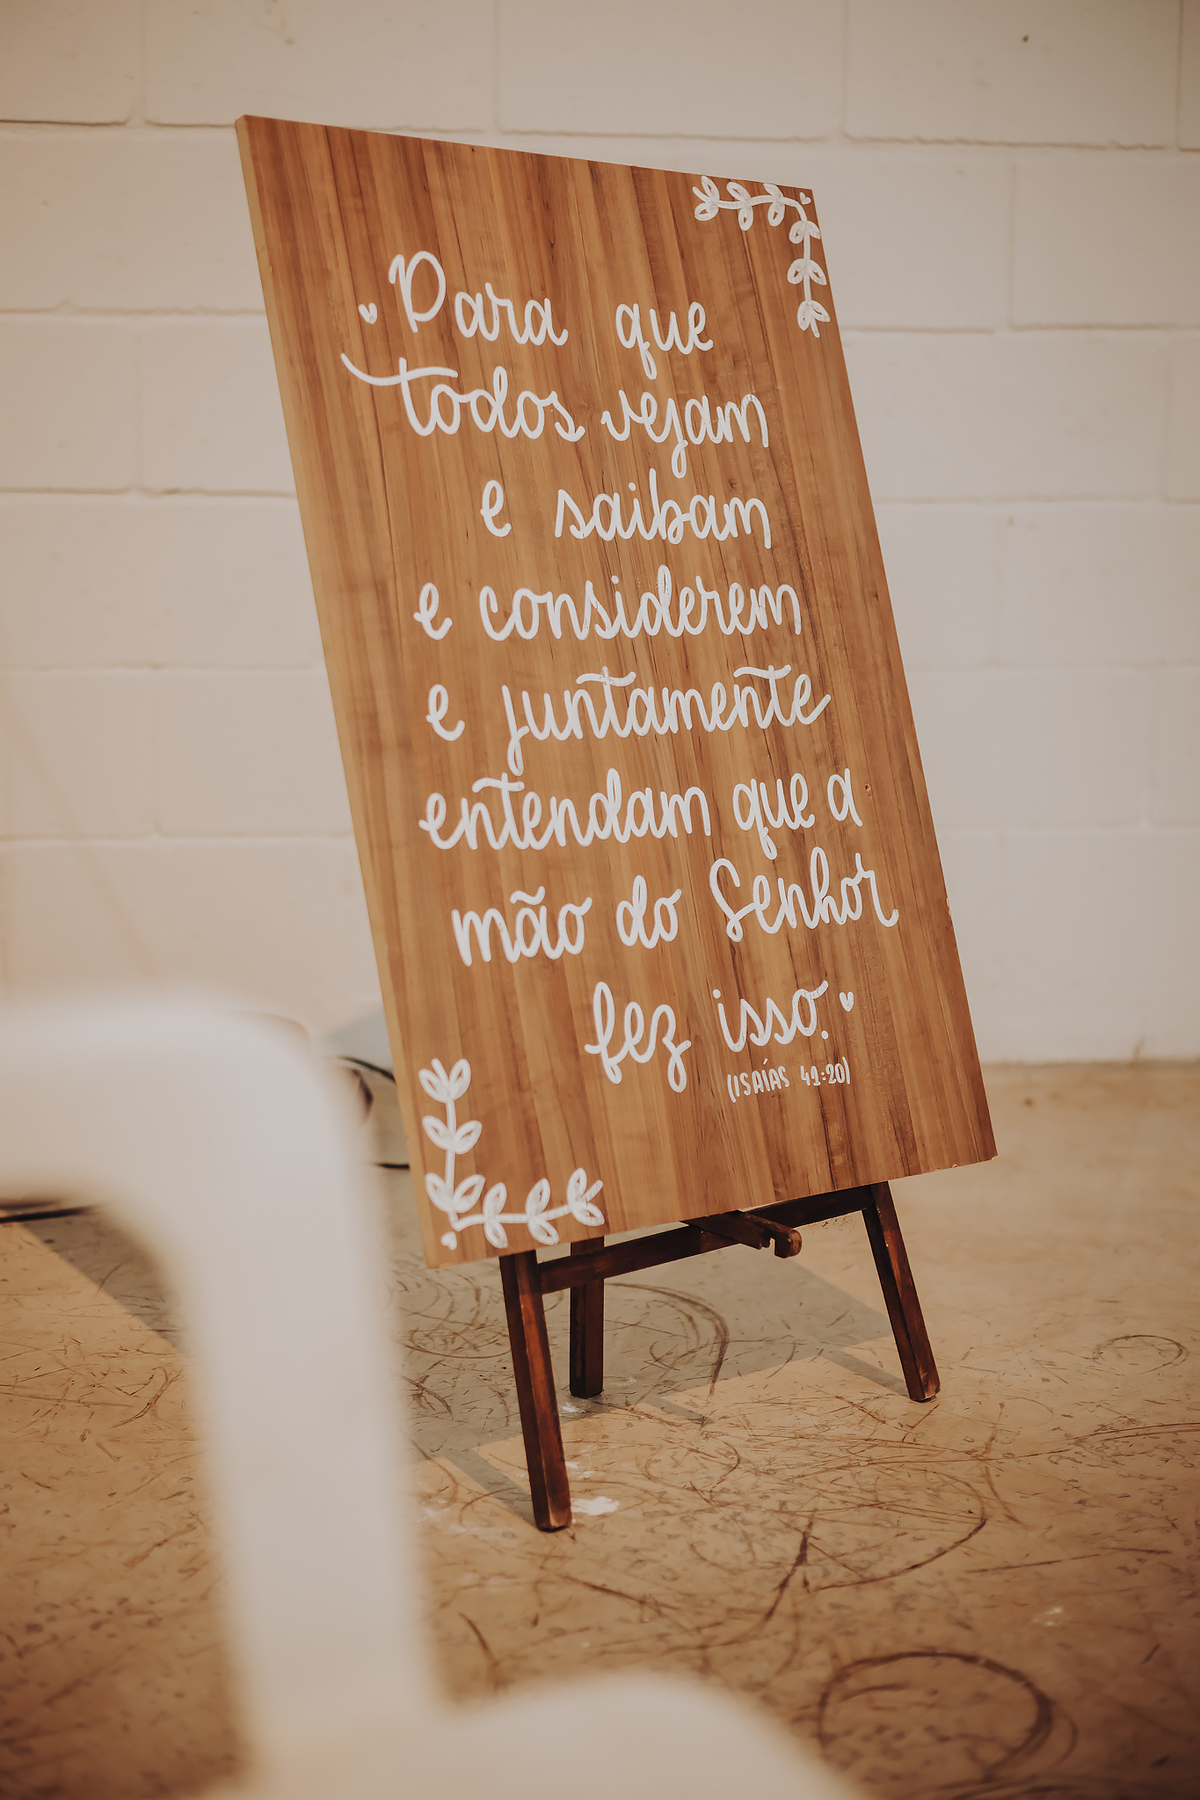 Para que
todos vejam
e saibam
e considerem
e juntamente
entendam que a
mão do Senhor
fez isso.
(ISAÍAS 41:20)